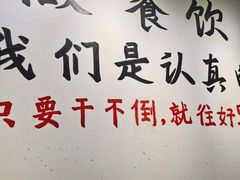 做餐饮
我们是认真的
只要干不倒,就往好